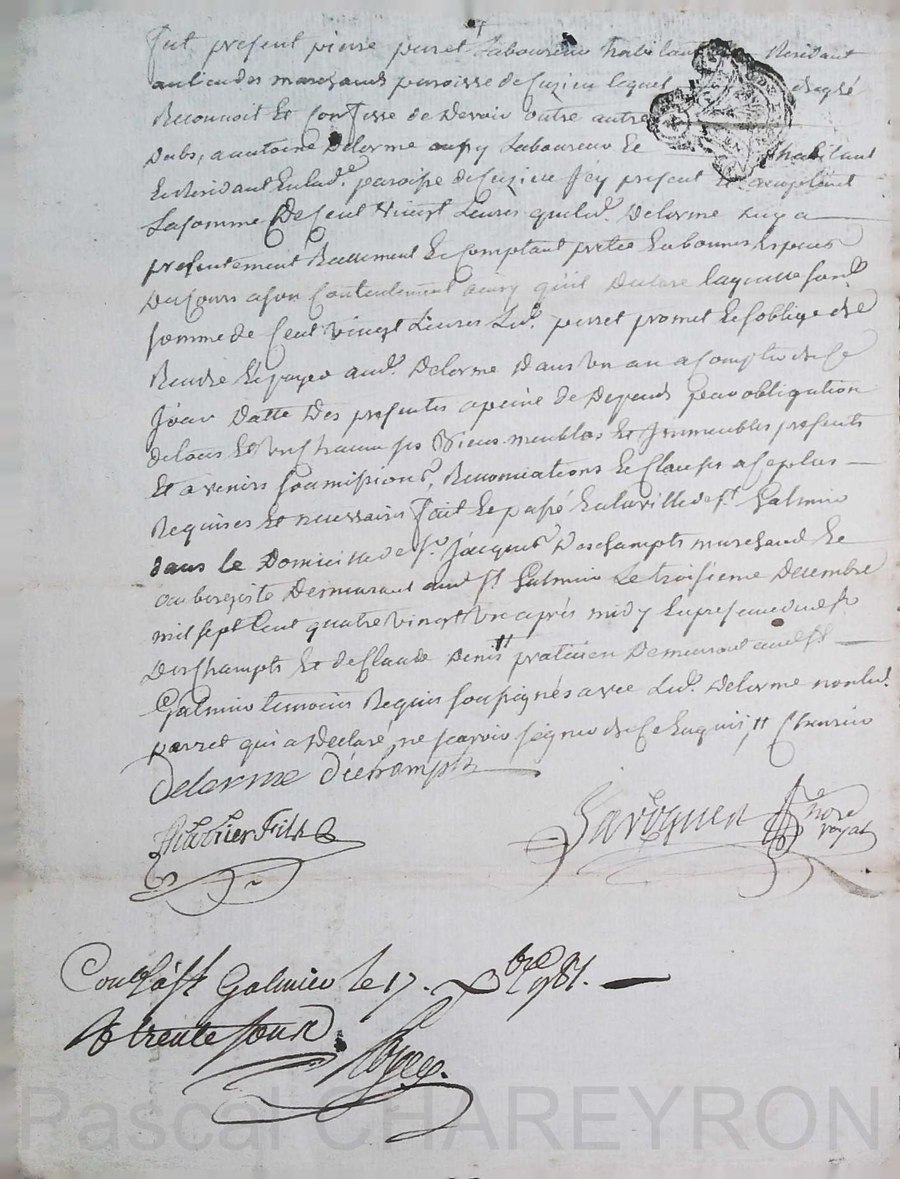 fut present pierre perret Laboureur habitant Residant
au lieu des marchands paroisse de Cuzieu lequel de gré
Reconnoit Et Confesse de Devoir outre autre
Dubs, a antoine Delorme aussy Laboureur Et habitant
Et Residant En lad.e paroisse de Cuzieu Icy present Et acceptant
La somme De Cent vingt Livres que led. Delorme luy a
presentement Reellement Et Comptant pretée En bonnes Especes
Du Cours a son Contentement ainsy qu'il Declare laquelle
somme de Cent vingt Livres Led. perret promet Et s'oblige de
Rendre Et payer aud. Delorme Dans un an a Compter de Ce
Jour Datte Des presentes a peine de Depends par obligation
de tous Et un chacuns ses Biens meubles Et Immeubles presents
Et avenirs soumissions, Renonciations Et Clauses a Ce plus
Requises Et necessaires fait Et passé En la ville de St. Galmier
dans le Domicile de Sr. Jacques Deschampts marchand Et
aubergiste Demeurant aud. St Galmier Le troisieme Decembre
mil sept Cent quatre vingt un après midy En presence dud. Sr
Deschampts Et de Claude Denis praticien Demeurant aud. St
Galmier temoins Requis soussignés avec Led. Delorme non led.
perret qui a Declaré ne scavoir signer de Ce Enquis
Delorme Dechampts
fils
nore
royal
Con.lé a St Galmier le 17. Xbre 1781.
R trente sous
Pascal CHAREYRON